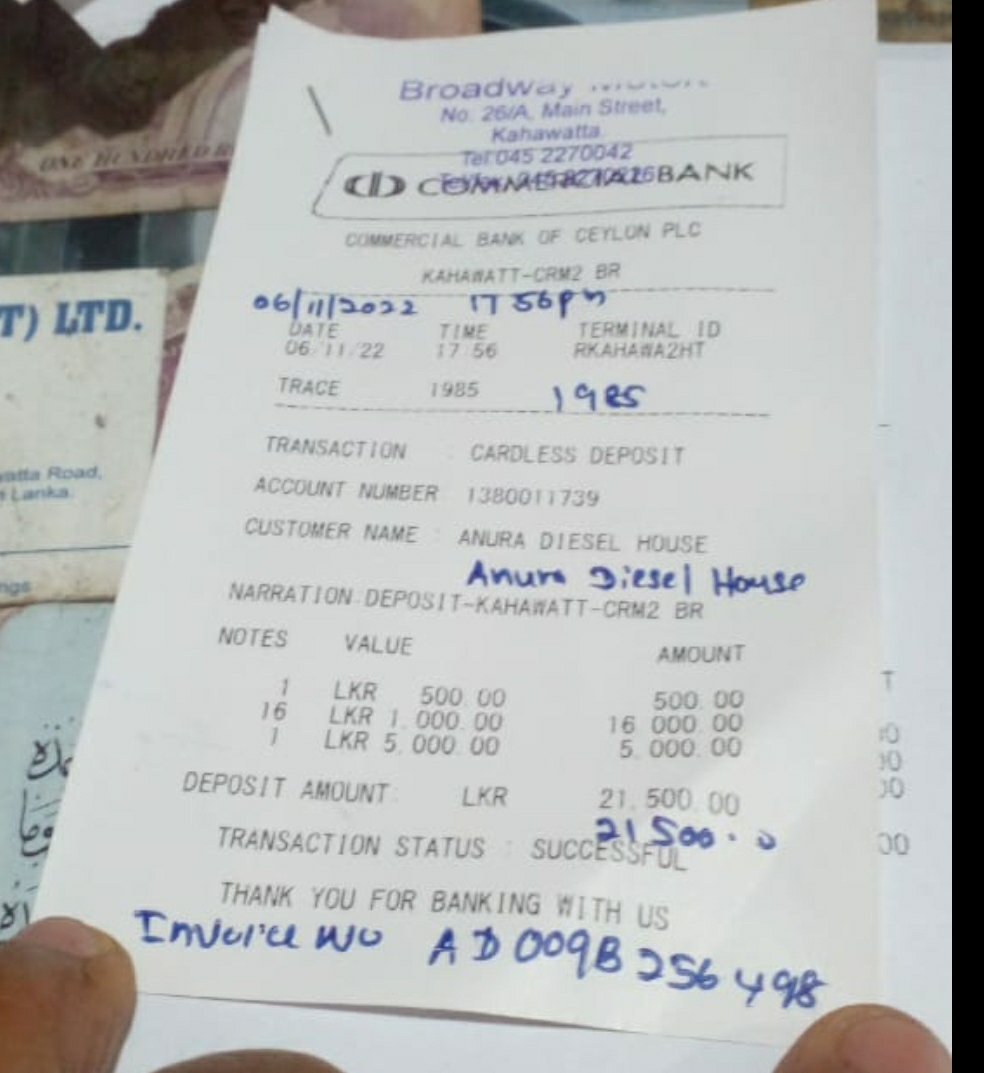 Broadway Motor
No. 26/A, Main Street,
Kahawatta.
Tel:045 2270042
COMMERCIAL BANK
COMMERCIAL BANK OF CEYLON PLC
KAHAWATT-CRM2 BR
06/11/2022 17 56pm
DATE TIME TERMINAL ID
06/11/22 17 56 RKAHAWA2HT
TRACE 1985 1985
TRANSACTION : CARDLESS DEPOSIT
ACCOUNT NUMBER 1380011739
CUSTOMER NAME : ANURA DIESEL HOUSE
Anura Diesel House
NARRATION:DEPOSIT-KAHAWATT-CRM2 BR
NOTES VALUE AMOUNT
1 LKR 500.00 500.00
16 LKR 1,000.00 16 000.00
1 LKR 5,000.00 5,000.00
DEPOSIT AMOUNT: LKR 21,500.00
21500.0
TRANSACTION STATUS : SUCCESSFUL
THANK YOU FOR BANKING WITH US
Invoice No AD009B256498
ONE HUNDRED
T) LTD.
watta Road,
Lanka.
ngs
T
00
00
00
00